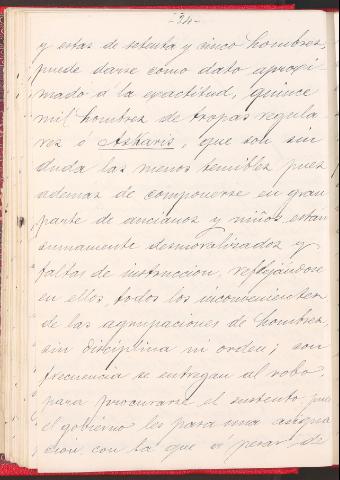 -24-
y estas de setenta y cinco hombres,
puede darse como dato aproxi
mado á la exactitud, quince
mil hombres de tropas regula
res ó Askaris, que son sin
duda las menos temibles pues
ademas de componerse en gran
parte de ancianos y niños están
sumamente desmoralizados y
faltos de instruccion, reflejándose
en ellos, todos los inconvenientes
de las agrupaciones de hombres,
sin disciplina ni orden; con
frecuencia se entregan al robo
para procurarse el sustento, pues
el gobierno les pasa una asigna
cion con la que á pesar de